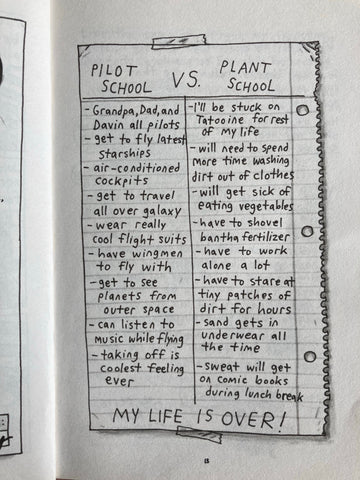 PILOT SCHOOL VS. PLANT SCHOOL
-Grandpa, Dad, and
Davin all pilots
-get to fly latest
starships
-air-conditioned
cockpits
-get to travel
all over galaxy
-wear really
cool flight suits
-have wingmen
to fly with
-get to see
planets from
outer space
-can listen to
music while flying
-taking off is
coolest feeling
ever
-I'll be stuck on
Tatooine for rest
of my life
-will need to spend
more time washing
dirt out of clothes
-will get sick of
eating vegetables
-have to shovel
bantha fertilizer
-have to work
alone a lot
-have to stare at
tiny patches of
dirt for hours
-sand gets in
underwear all
the time
-sweat will get
on comic books
during lunch break
MY LIFE IS OVER!